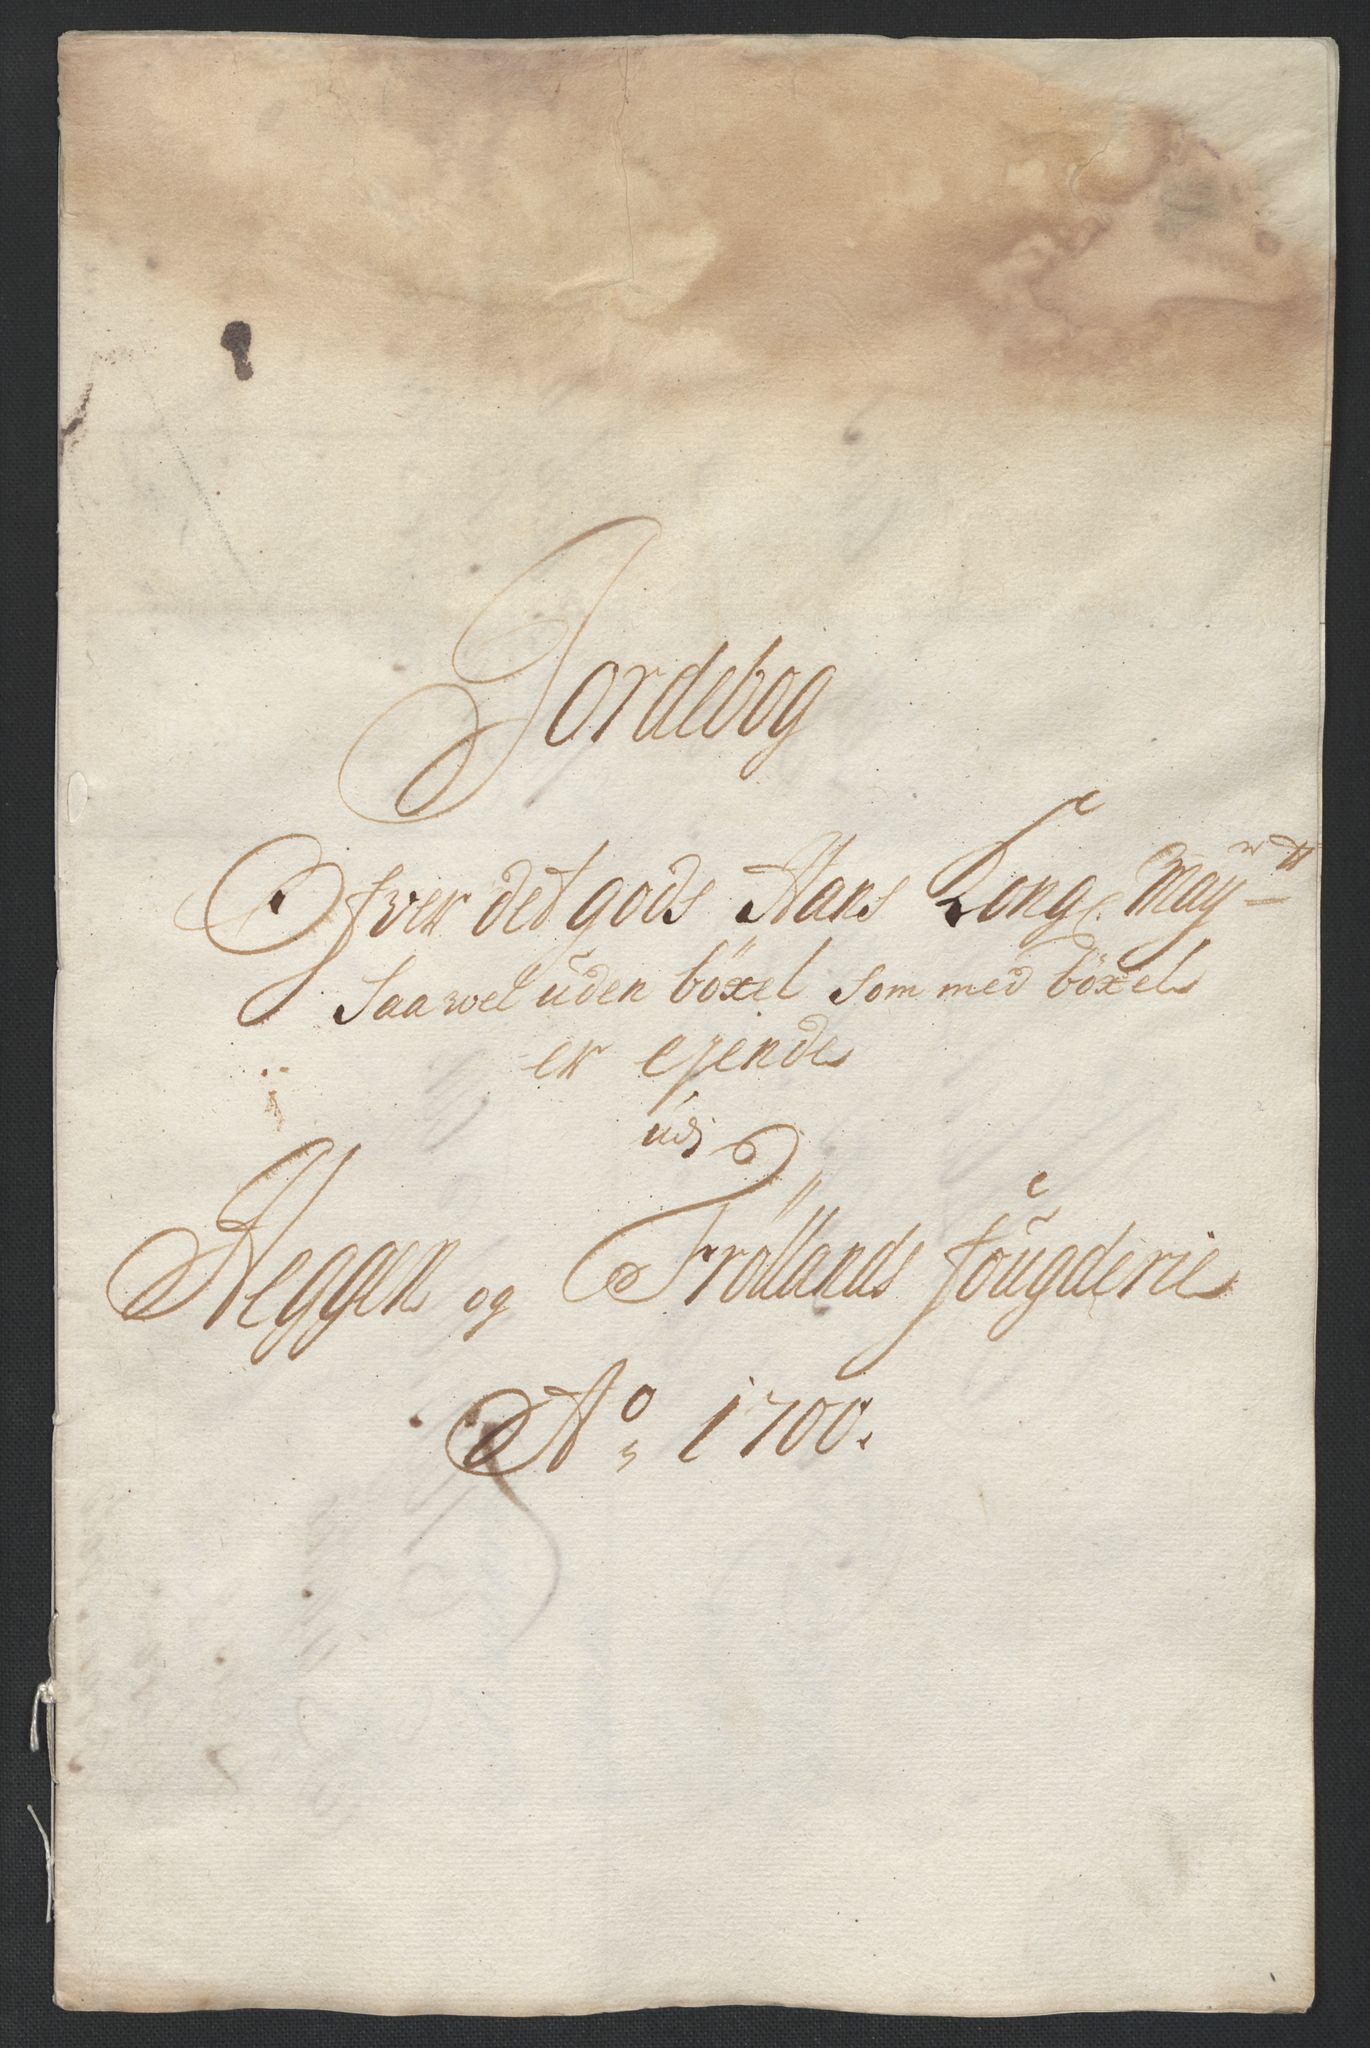 Jordebog
Ofver det gods Hans Kong. Mayᵗᵗ
Saa wel uden böxel som med böxel
er ejende
udj
Heggen og Fröllands fougderie
Aᵒ 1700.